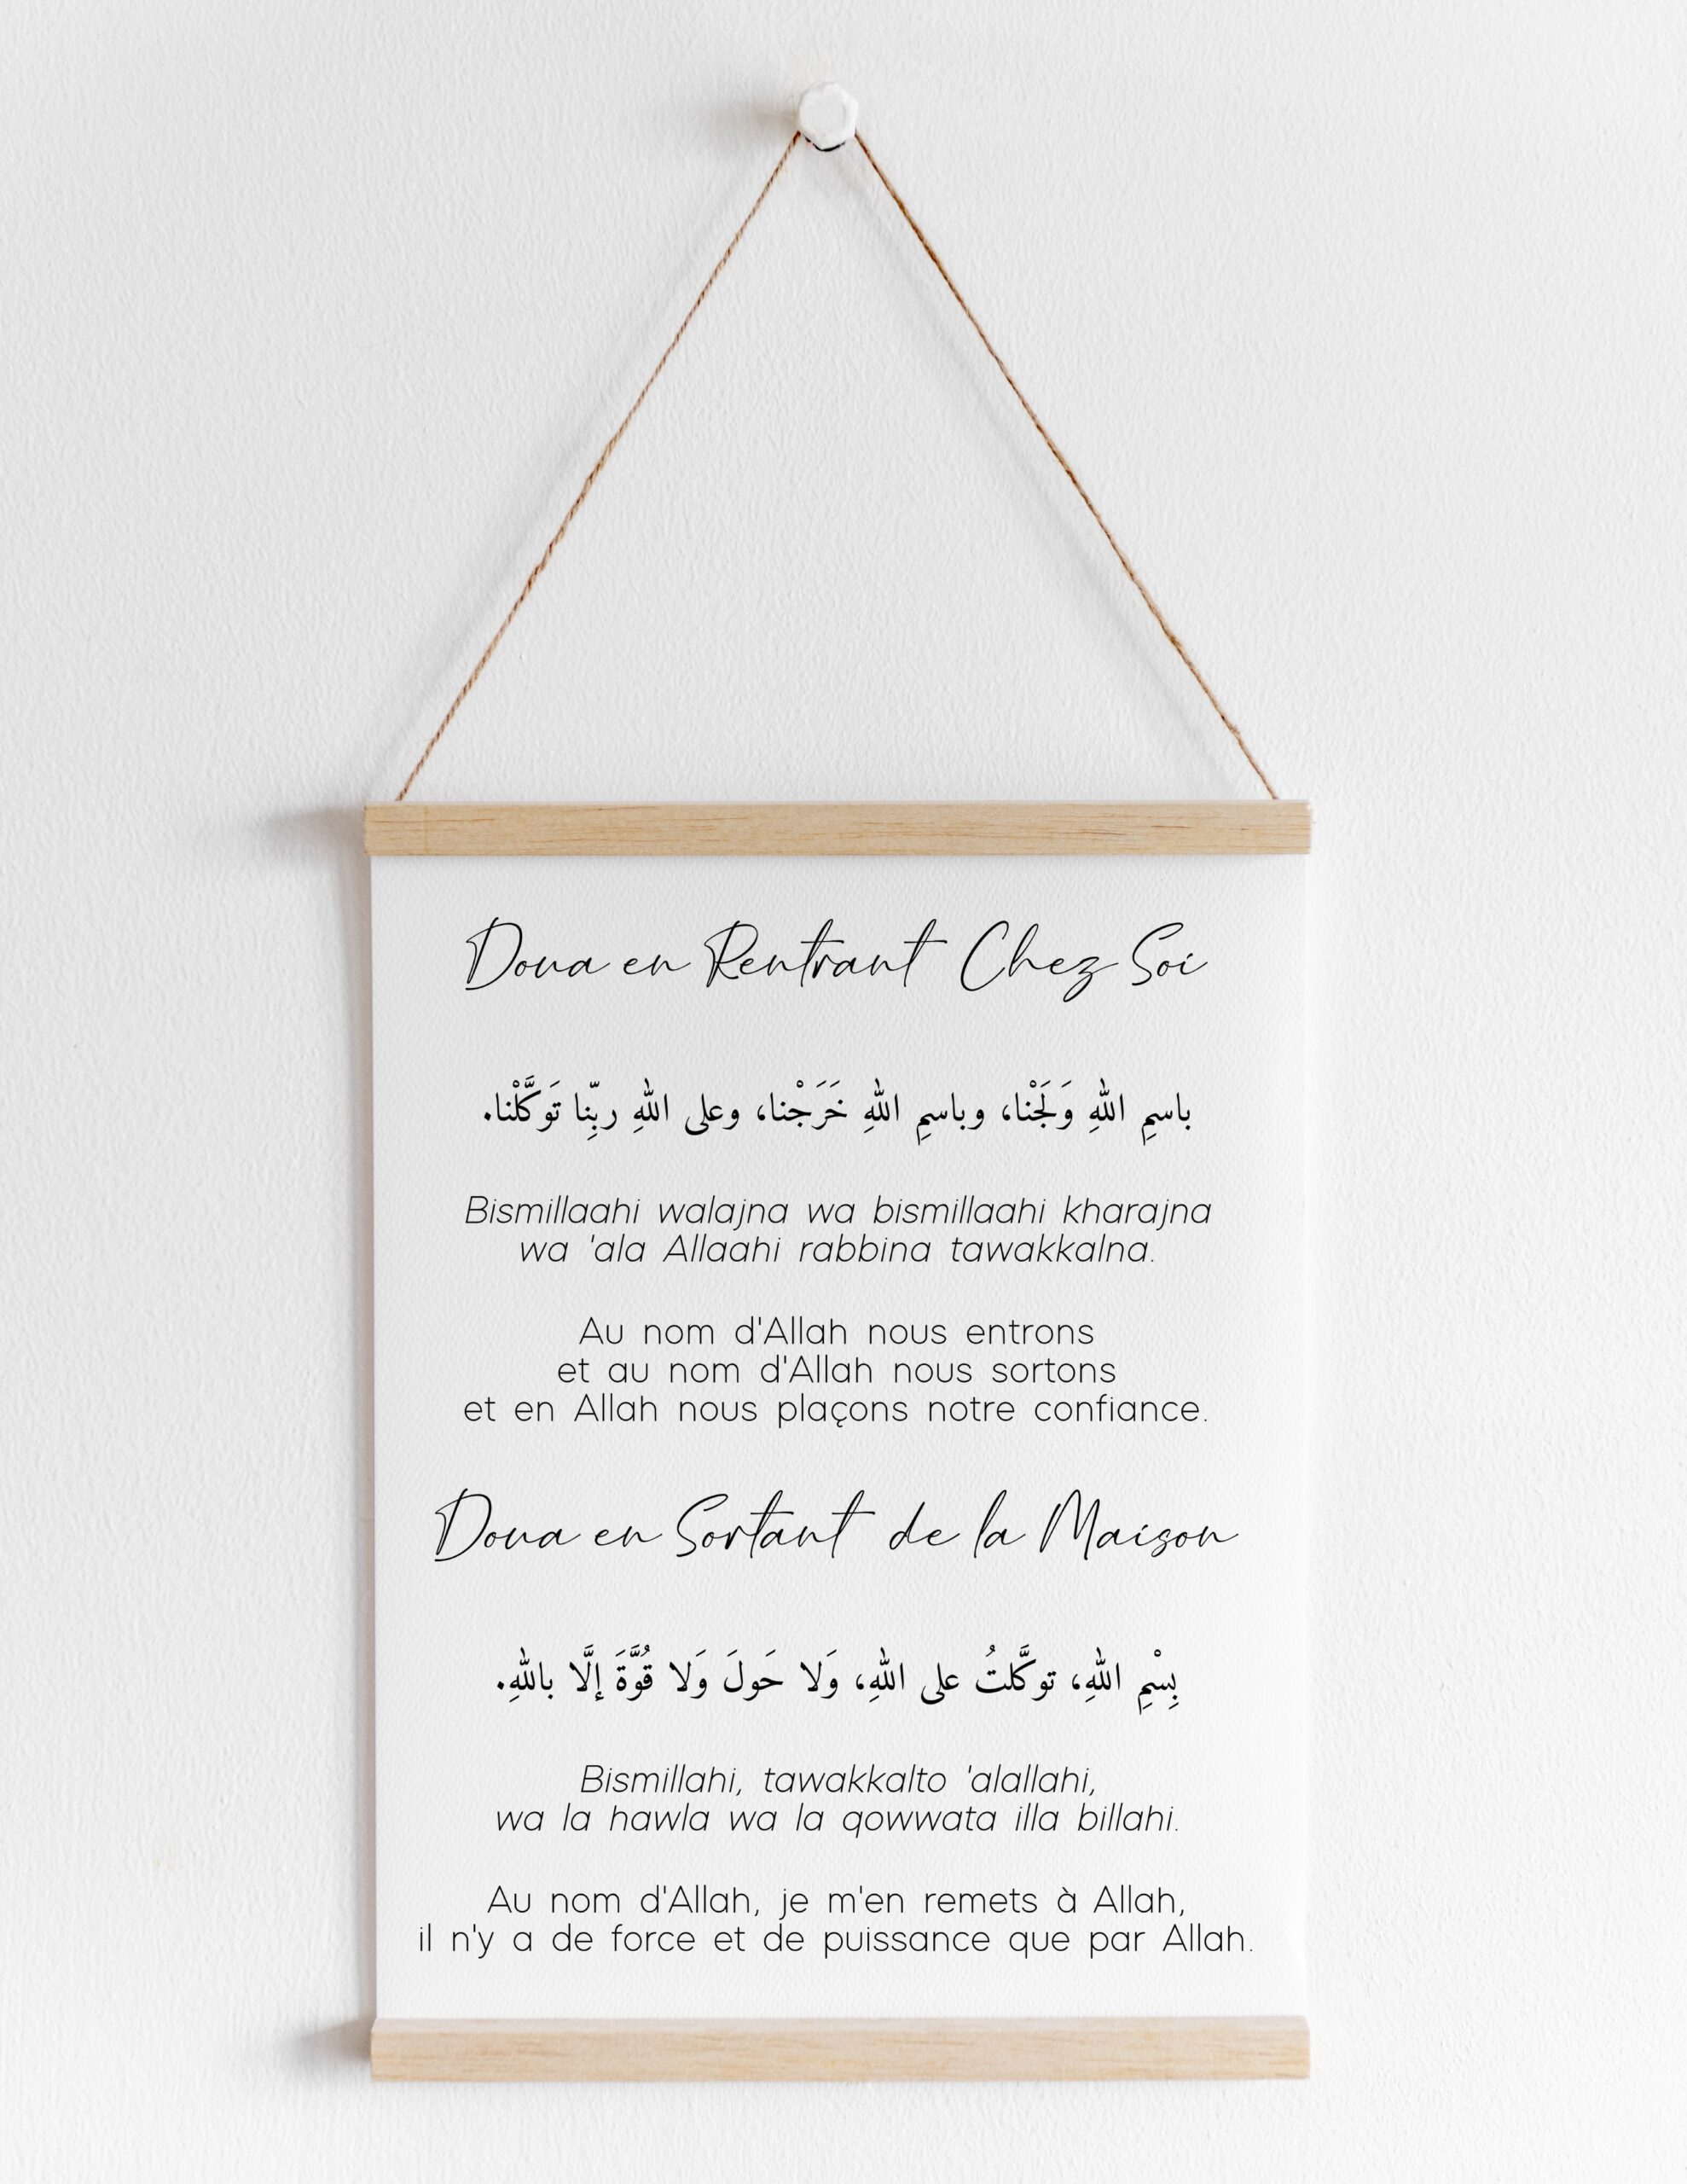 Doua en Rentrant Chez Soi
باسمِ اللهِ وَلَجْنا، وباسمِ اللهِ خَرَجْنا، وعلى اللهِ ربِّنا تَوَكَّلْنا.
Bismillaahi walajna wa bismillaahi kharajna
wa 'ala Allaahi rabbina tawakkalna.
Au nom d'Allah nous entrons
et au nom d'Allah nous sortons
et en Allah nous plaçons notre confiance.
Doua en Sortant de la Maison
بِسْمِ اللهِ، توكَّلتُ على اللهِ، وَلا حَولَ وَلا قُوَّةَ إلَّا باللهِ.
Bismillahi, tawakkalto 'alallahi,
wa la hawla wa la qowwata illa billahi.
Au nom d'Allah, je m'en remets à Allah,
il n'y a de force et de puissance que par Allah.